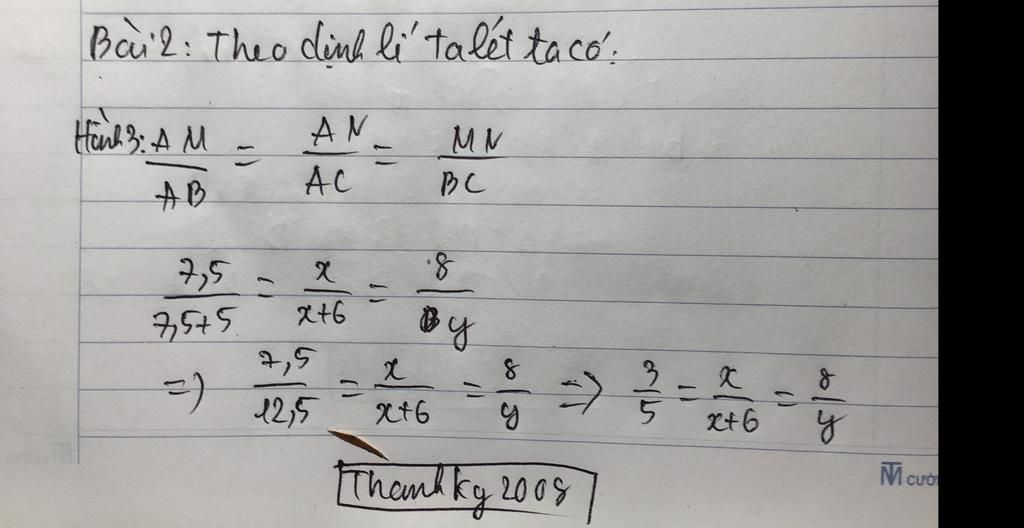 Bài 2: Theo định lí ta lét ta có:
Hình 3: AM/AB = AN/AC = MN/BC
7,5/7,5+5 = x/x+6 = 8/y
=> 7,5/12,5 = x/x+6 = 8/y => 3/5 = x/x+6 = 8/y
Thanh ky 2008
TM cườ